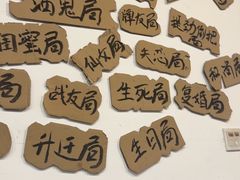 酒鬼局
牌友局
闺蜜局
仙女局
失恋局
战友局
生死局
复婚局
升迁局
生日局